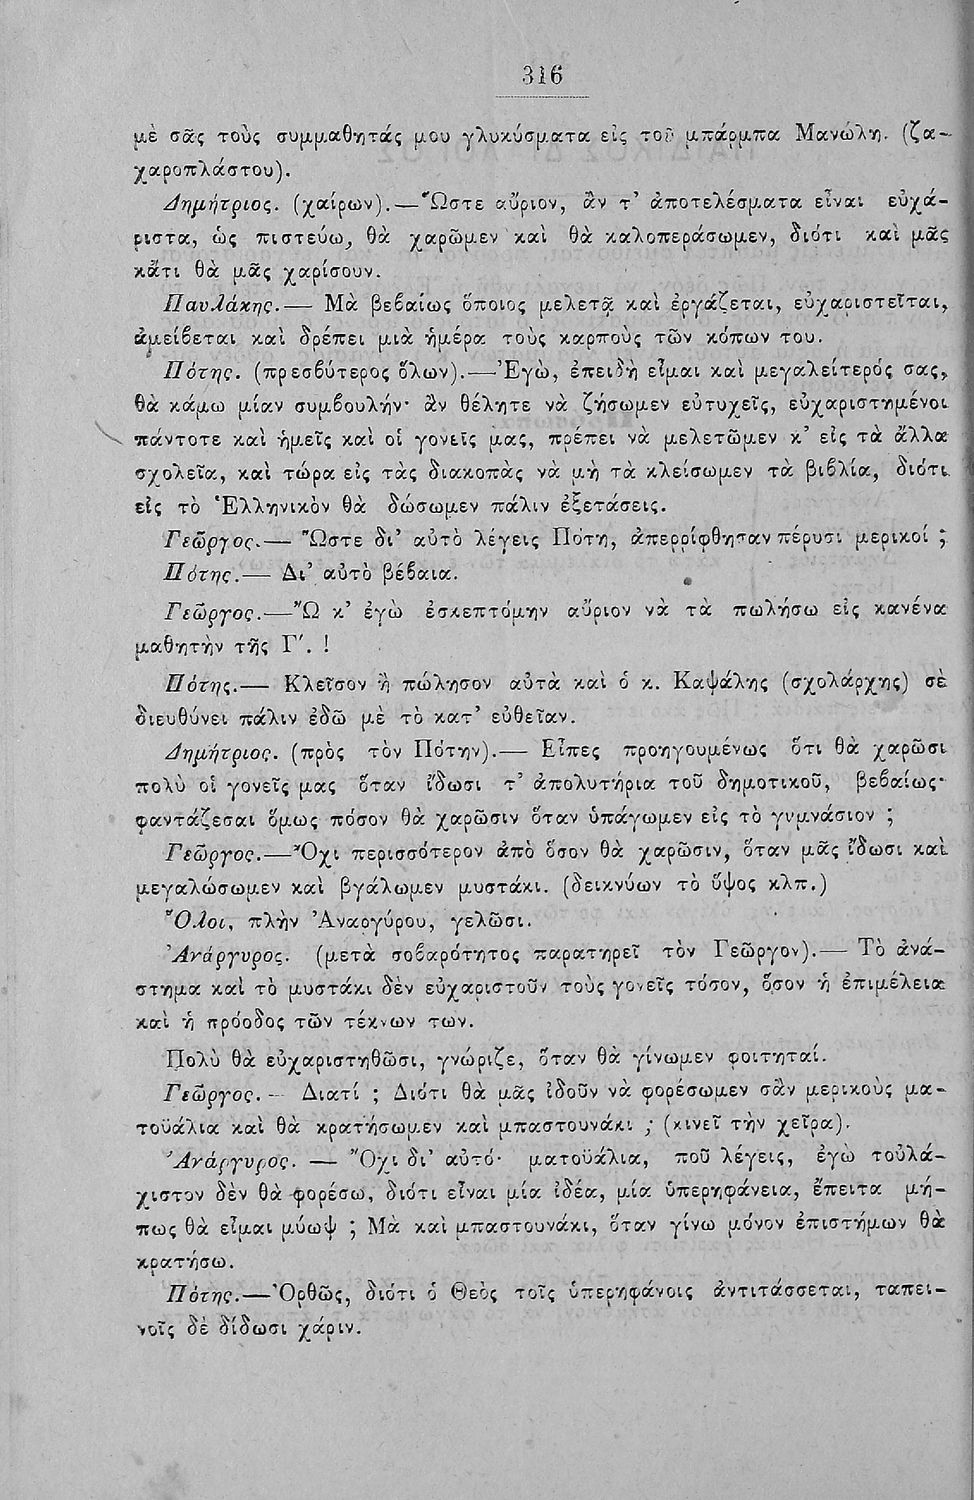 316
μὲ σᾶς τοὺς συμμαθητάς μου γλυκύσματα εἰς τοῦ μπάρμπα Μανώλη. (ζα-
χαροπλάστου).
Δημήτριος. (χαίρων).— Ὥστε αὔριον, ἂν τ' ἀποτελέσματα εἶναι εὐχά-
ριστα, ὡς πιστεύω, θὰ χαρῶμεν καὶ θὰ καλοπεράσωμεν, διότι καὶ μᾶς
κἄτι θὰ μᾶς χαρίσουν.
Παυλάκης.— Μὰ βεβαίως ὅποιος μελετᾷ καὶ ἐργάζεται, εὐχαριστεῖται,
ἀμείβεται καὶ δρέπει μιὰ ἡμέρα τοὺς καρποὺς τῶν κόπων του.
Πότης. (πρεσβύτερος ὅλων).—Ἐγὼ, ἐπειδὴ εἶμαι καὶ μεγαλείτερός σας,
θὰ κάμω μίαν συμβουλήν· ἂν θέλητε νὰ ζήσωμεν εὐτυχεῖς, εὐχαριστημένοι
πάντοτε καὶ ἡμεῖς καὶ οἱ γονεῖς μας, πρέπει νὰ μελετῶμεν κ' εἰς τὰ ἄλλα
σχολεῖα, καὶ τώρα εἰς τὰς διακοπὰς νὰ μὴ τὰ κλείσωμεν τὰ βιβλία, διότι
εἰς τὸ Ἑλληνικὸν θὰ δώσωμεν πάλιν ἐξετάσεις.
Γεῶργος.— Ὥστε δι' αὐτὸ λέγεις Πότη, ἀπερρίφθησαν πέρυσι μερικοί ;
Πότης.— Δι' αὐτὸ βέβαια.
Γεῶργος.—Ὢ κ' ἐγὼ ἐσκεπτόμην αὔριον νὰ τὰ πωλήσω εἰς κανένα
μαθητὴν τῆς Γ'. !
Πότης.— Κλεῖσον ἢ πώλησον αὐτὰ καὶ ὁ κ. Καψάλης (σχολάρχης) σὲ
διευθύνει πάλιν ἐδῶ μὲ τὸ κατ' εὐθεῖαν.
Δημήτριος. (πρὸς τὸν Πότην).— Εἶπες προηγουμένως ὅτι θὰ χαρῶσι
πολὺ οἱ γονεῖς μας ὅταν ἴδωσι τ' ἀπολυτήρια τοῦ δημοτικοῦ, βεβαίως·
φαντάζεσαι ὅμως πόσον θὰ χαρῶσιν ὅταν ὑπάγωμεν εἰς τὸ γυμνάσιον ;
Γεῶργος.—Ὄχι περισσότερον ἀπὸ ὅσον θὰ χαρῶσιν, ὅταν μᾶς ἴδωσι καὶ
μεγαλώσωμεν καὶ βγάλωμεν μυστάκι. (δεικνύων τὸ ὕψος κλπ.)
Ὅλοι, πλὴν Ἀναργύρου, γελῶσι.
Ἀνάργυρος. (μετὰ σοβαρότητος παρατηρεῖ τὸν Γεῶργον).— Τὸ ἀνά-
στημα καὶ τὸ μυστάκι δὲν εὐχαριστοῦν τοὺς γονεῖς τόσον, ὅσον ἡ ἐπιμέλεια
καὶ ἡ πρόοδος τῶν τέκνων των.
Πολὺ θὰ εὐχαριστηθῶσι, γνώριζε, ὅταν θὰ γίνωμεν φοιτηταί.
Γεῶργος.— Διατί ; Διότι θὰ μᾶς ἰδοῦν νὰ φορέσωμεν σὰν μερικοὺς μα-
τοϋάλια καὶ θὰ κρατήσωμεν καὶ μπαστουνάκι ; (κινεῖ τὴν χεῖρα).
Ἀνάργυρος. — Ὄχι δι' αὐτό· ματοϋάλια, ποῦ λέγεις, ἐγὼ τοὐλά-
χιστον δὲν θὰ φορέσω, διότι εἶναι μία ἰδέα, μία ὑπερηφάνεια, ἔπειτα μή-
πως θὰ εἶμαι μύωψ ; Μὰ καὶ μπαστουνάκι, ὅταν γίνω μόνον ἐπιστήμων θὰ
κρατήσω.
Πότης.—Ὀρθῶς, διότι ὁ Θεὸς τοῖς ὑπερηφάνοις ἀντιτάσσεται, ταπει-
νοῖς δὲ δίδωσι χάριν.